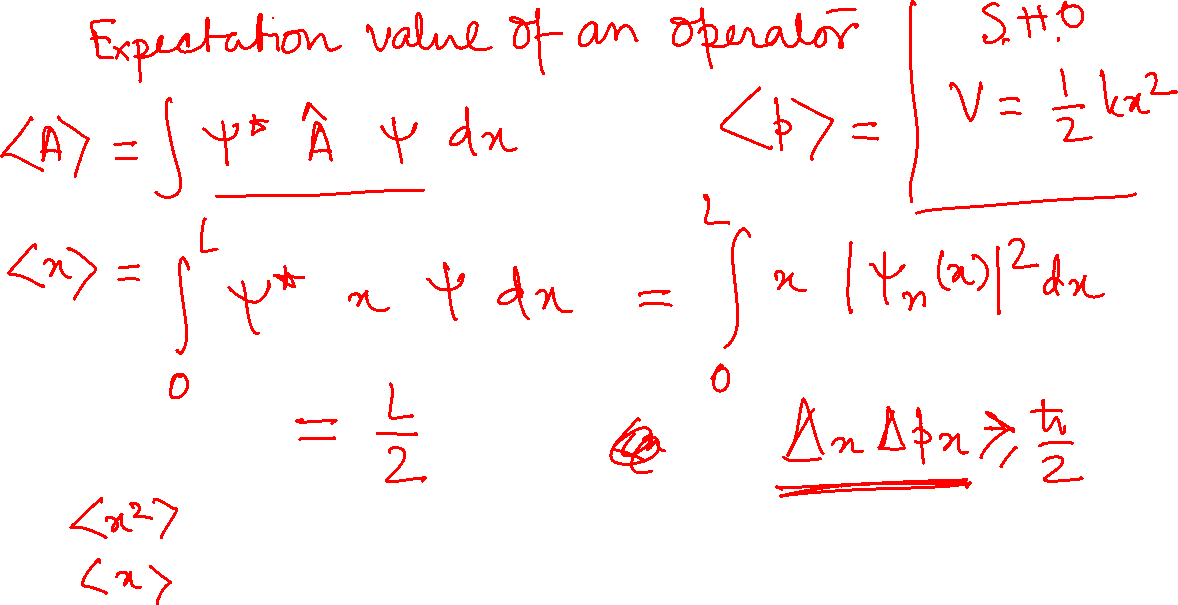 Expectation value of an operator
S.H.O
⟨A⟩ = ∫ ψ* Â ψ dx
⟨p⟩ =
V = 1/2 kx²
⟨x⟩ = ∫₀ᴸ ψ* x ψ dx = ∫₀ᴸ x |ψₙ(x)|² dx
= L/2
Δx Δpx ≥ ħ/2
⟨x²⟩
⟨x⟩